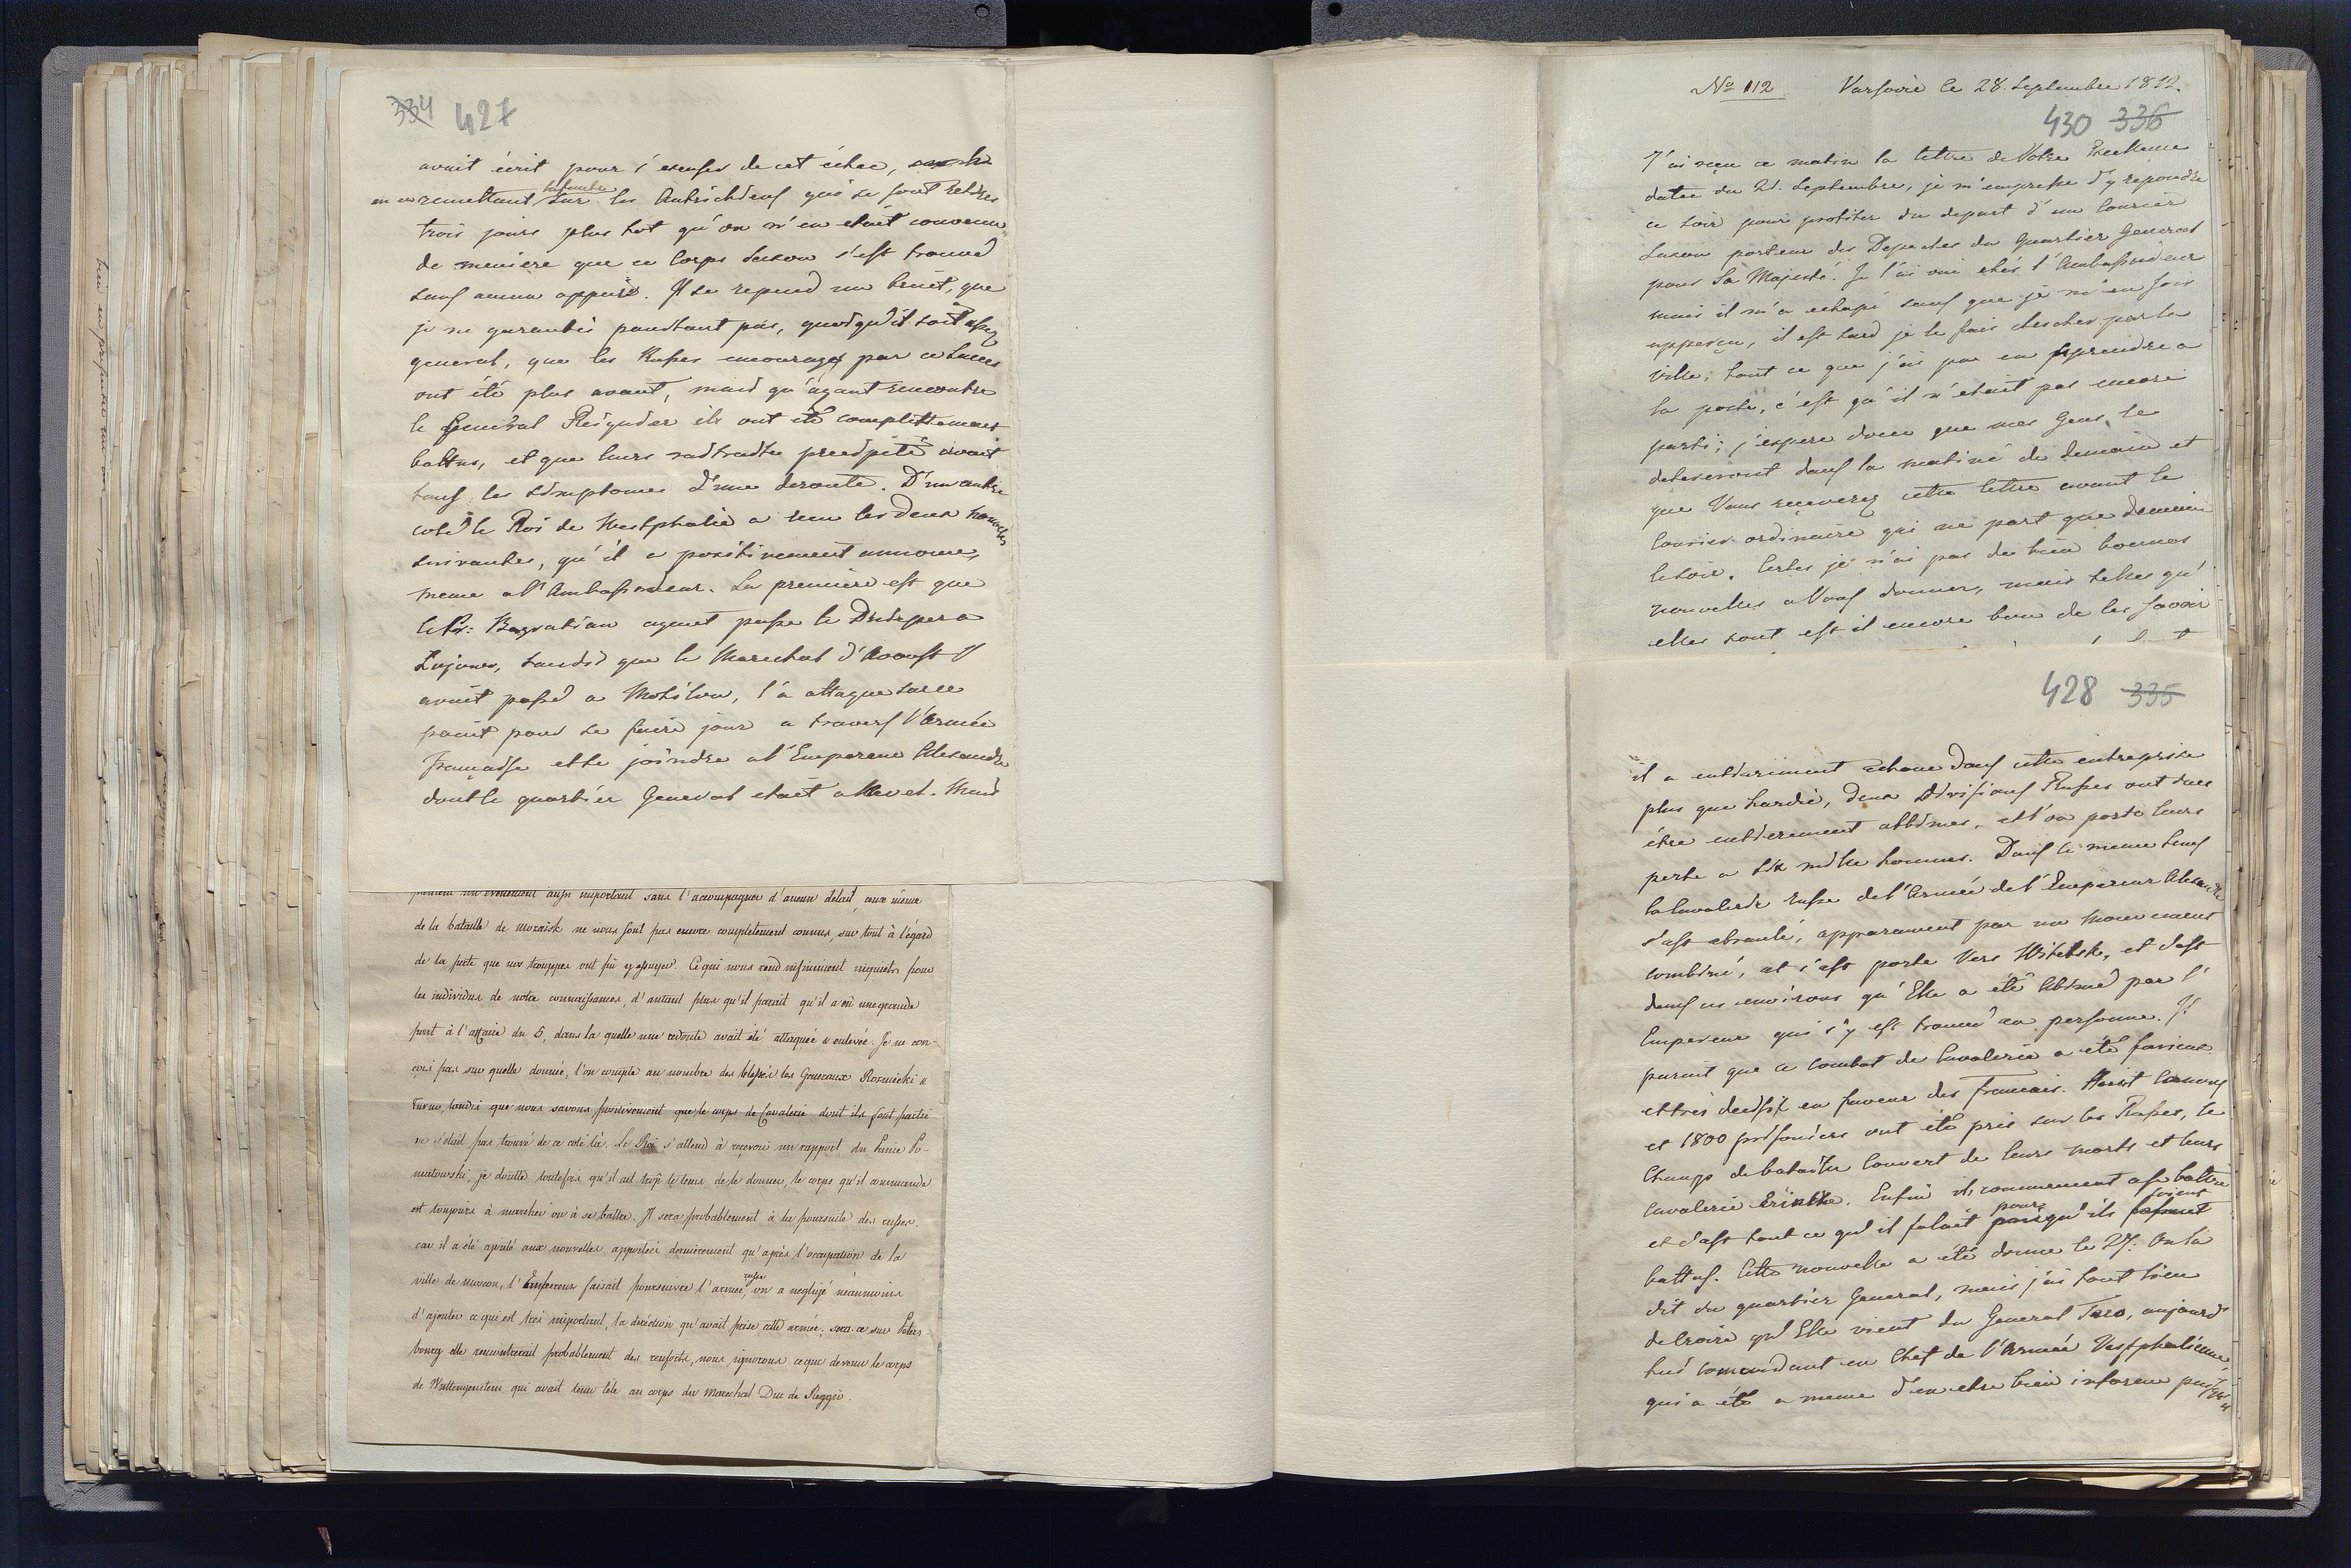 334 427
avait écrit pour s'excuser de cet échec,
en en remettant la faute sur les Autrichiens qui se sont retirés
trois jours plus tot qu'on n'en etait convenu
de meniere que ce Corps Saxon s'est trouvé
sans aucun appuis. Il se repend un bruit, que
je ne garantis pourtant pas, quoiqu'il soit assez
general, que les Russes encouragés par ce succes
ont été plus avant, mais qu'ayant rencontre
le General Reignier ils ont été complettement
battus, et que leurs retraite precipité avait
tous les simptomes d'une deroute. D'un autre
coté le Roi de Westphalie a reçu les deux nouvelles
suivantes, qu'il a positivement annoncé,
meme a l'Ambassadeur. La premiere est que
le Pr: Bagration ayant passe le Dnieper a
tandis que le Marechal d'Avoust l'
avait passé a Mohilow, l'a attaque sur ce
point pour se faire jour a travers l'Armée
Française et se joindre a l'Empereur Alexandre
dont le quartier General etait a Mais
un evenement aussi important sans l'accompagner d'aucun détail, ceux même
de la bataille de Mozaisk ne nous sont pas encore completement connus, sur tout à l'égard
de la perte que nos trouppes ont pû y essuyer. Ce qui nous rend infiniment inquiets pour
les individus de notre connaissance, d'autant plus qu'il parait qu'il a eû une grande
part à l'affaire du 5, dans la quelle une redoute avait été attaquée & enlevée. Je ne con-
cois pas sur quelle donnée, l'on compte au nombre des blessés les Generaux Rozniecki &
Turno, tandis que nous savons positivement que le corps de Cavalerie dont ils font partie
ne s'était pas trouvé de ce coté là. Le Roi s'attend à reçevoir un rapport du Prince Po-
niatowski, je doutte toutefois qu'il ait le tems de le donner, le corps qu'il commande
est toujours à marcher ou à se battre. Il sera probablement à la poursuite des russes.
car il a été ajouté aux nouvelles apportées dernierement qu'après l'occupation de la
ville de Moscou, l'Empereur faisait poursuivre l'armée russe, on a negligé néanmoins
d'ajouter ce qui est très important, la direction qu'avait prise cette armée; sera-ce sur Peters-
bourg elle rencontrerait probablement des renforts, nous ignorons ce que devenu le corps
de Wittenguenstein qui avait tenu tête au corps du Marechal Duc de Reggio.
No 112 Varsovie le 28. Septembre 1812.
430 336
J'ai reçu ce matin la lettre de Votre Excellence
datée du 21. Septembre, je m'empresse d'y repondre
ce soir pour profiter du depart d'un Courier
Saxon porteur des Depeches du Quartier General
pour Sa Majesté. Je l'ai vu chés l'Ambassadeur
mais il m'a echapé sans que je m'en sois
apperçu, il est tard je le fais chercher par la
ville; tout ce que j'ai pu en apprendre a
la poste, c'est qu'il n'etait pas encore
parti; j'espere donc que mes Gens le
deterreront dans la matiné de demain et
que Vous recevrez cette lettre avant le
Courier ordinaire qui ne part que demain
le soir. Certes je n'ai pas de bien bonnes
nouvelles a Vous donner, mais telles qu'
elles sont est il encore bon de les savoir
428 335
il a entierement echoue dans cette entreprise
plus que hardie, deux Divisions Russes ont dues
étre entierement abbimés, et l'on porte leurs
perte a six mille hommes. Dans le meme tems
la Cavalerie russe de l'Armée de l'Empereur Alexandre
s'est ebranlé, apparament par un mouvement
combiné, et s'est porté vers Witebsk, et c'est
dans ces environs qu'Elle a été abimé par l'
Empereur qui s'y est trouvé en personne. Il
parait que ce combat de Cavalerie a été furieux
et tres decisif en faveur des Francais. Canons
et 1800 prisoniers ont été pris sur les Russes, le
Champ de bataille couvert de leurs morts et leurs
Cavalerie Enfin ils commencent a se battre
et c'est tout ce qu'il falait pour qu'ils soient
battus. Cette nouvelle a été donne le 25. On la
dit du quartier General, mais j'ai tout lieu
de croire qu'Elle vient du General Taro, aujourd'
hui comandant en Chef de l'Armée Vestphalienne,
qui a été a meme d'en etre bien informe